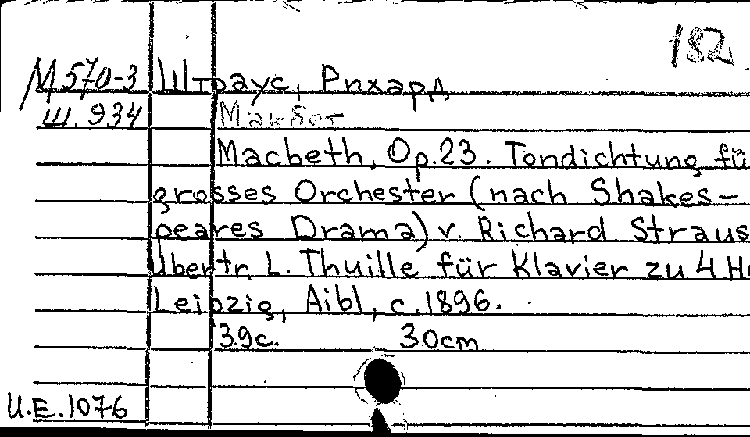 182
М 570-3 Штраус, Рихард
Ш. 934 Макбет
Macbeth, Op. 23. Tondichtung fü
grosses Orchester (nach Shakes-
peares Drama) v. Richard Straus
Übertr. L. Thuille für Klavier zu 4 H
Leipzig, Aibl, c. 1896.
39c. 30cm
U.E. 1076